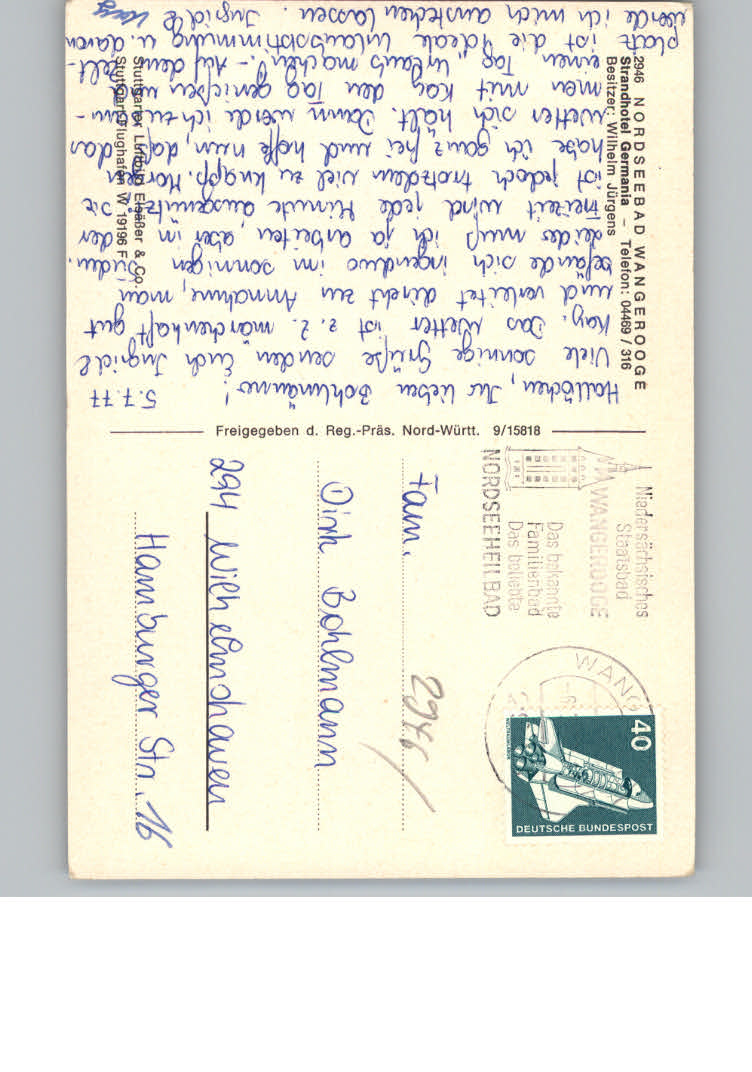 2946 NORDSEEBAD WANGEROOGE
Strandhotel Germania – Telefon: 04469 / 316
Besitzer: Wilhelm Jürgens
5.7.77
Hallöchen, Ihr lieben Bohlmänner!
Viele sonnige Grüße senden Euch Ingrid &
Kay. Das Wetter ist z. Z. märchenhaft gut
und verleitet direkt zu Annahme, man
befände sich irgendwo im sonnigen Süden.
Leider muß ich ja arbeiten, aber in der
Freizeit wird jede Minute ausgenützt; sie
ist jedoch trotzdem viel zu knapp. Morgen
habe ich ganz frei und hoffe nun, daß das
Wetter sich hält. Dann werde ich zusam-
men mit Kay den Tag genießen und
einen Tag Urlaub machen. – Auf dem Zelt-
platz ist die ideale Urlaubsstimmung u. davon
werde ich mich anstecken lassen. Ingrid &
Kay
Stuttgarter Luftbild Elsäßer & Co.
Stuttgart Flughafen W 19196 F
Freigegeben d. Reg.-Präs. Nord-Württ. 9/15818
Niedersächsisches
Staatsbad
WANGEROOGE
Das bekannte
Familienbad
Das beliebte
NORDSEEHEILBAD
WANG
40
DEUTSCHE BUNDESPOST
2946/
Fam.
Dirk Bohlmann
294 Wilhelmshaven
Hamburger Str. 16